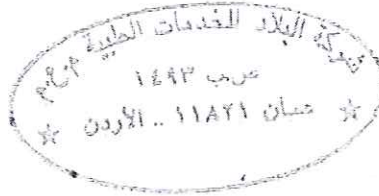 شركة البلاد للخدمات الطبية م.ع.م
ص.ب ١٤٩٣
عمان ١١٨٢١ .. الأردن